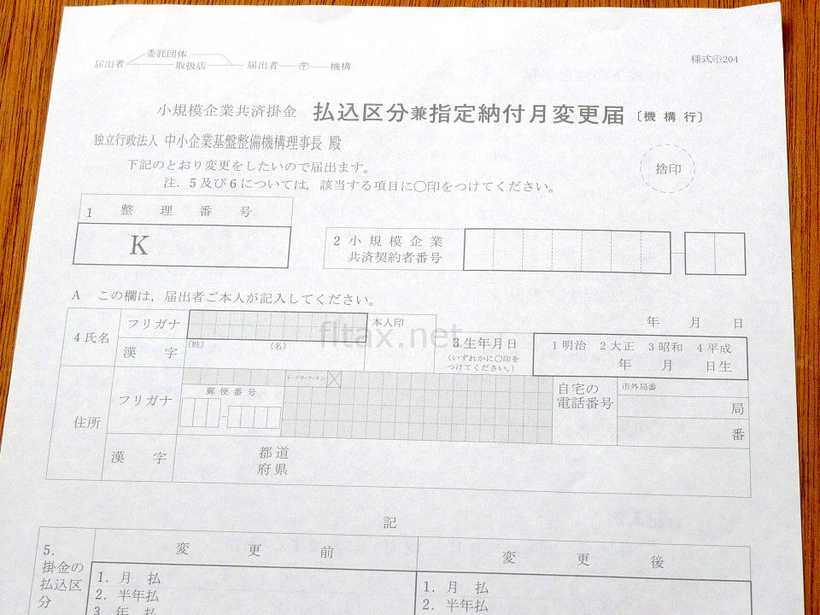 委託団体
届出者 取扱店 届出者 〒 機構
様式㊥204
小規模企業共済掛金 払込区分兼指定納付月変更届〔機構行〕
独立行政法人 中小企業基盤整備機構理事長 殿
下記のとおり変更をしたいので届出ます。
注.5及び6については,該当する項目に○印をつけてください。
捨印
1 整理番号
K
2 小規模企業
共済契約者番号
A この欄は,届出者ご本人が記入してください。
年 月 日
4 氏名
フリガナ
本人印
漢字
(姓) (名)
3.生年月日
(いずれかに○印を
つけてください。)
1 明治 2 大正 3 昭和 4 平成
年 月 日生
住所
フリガナ
郵便番号
自宅の
電話番号
市外局番
局
番
漢字
都道
府県
fltax.net
記
5.
掛金の
払込区
分
変更前
変更後
1.月 払
2.半年払
3.年 払
1.月 払
2.半年払